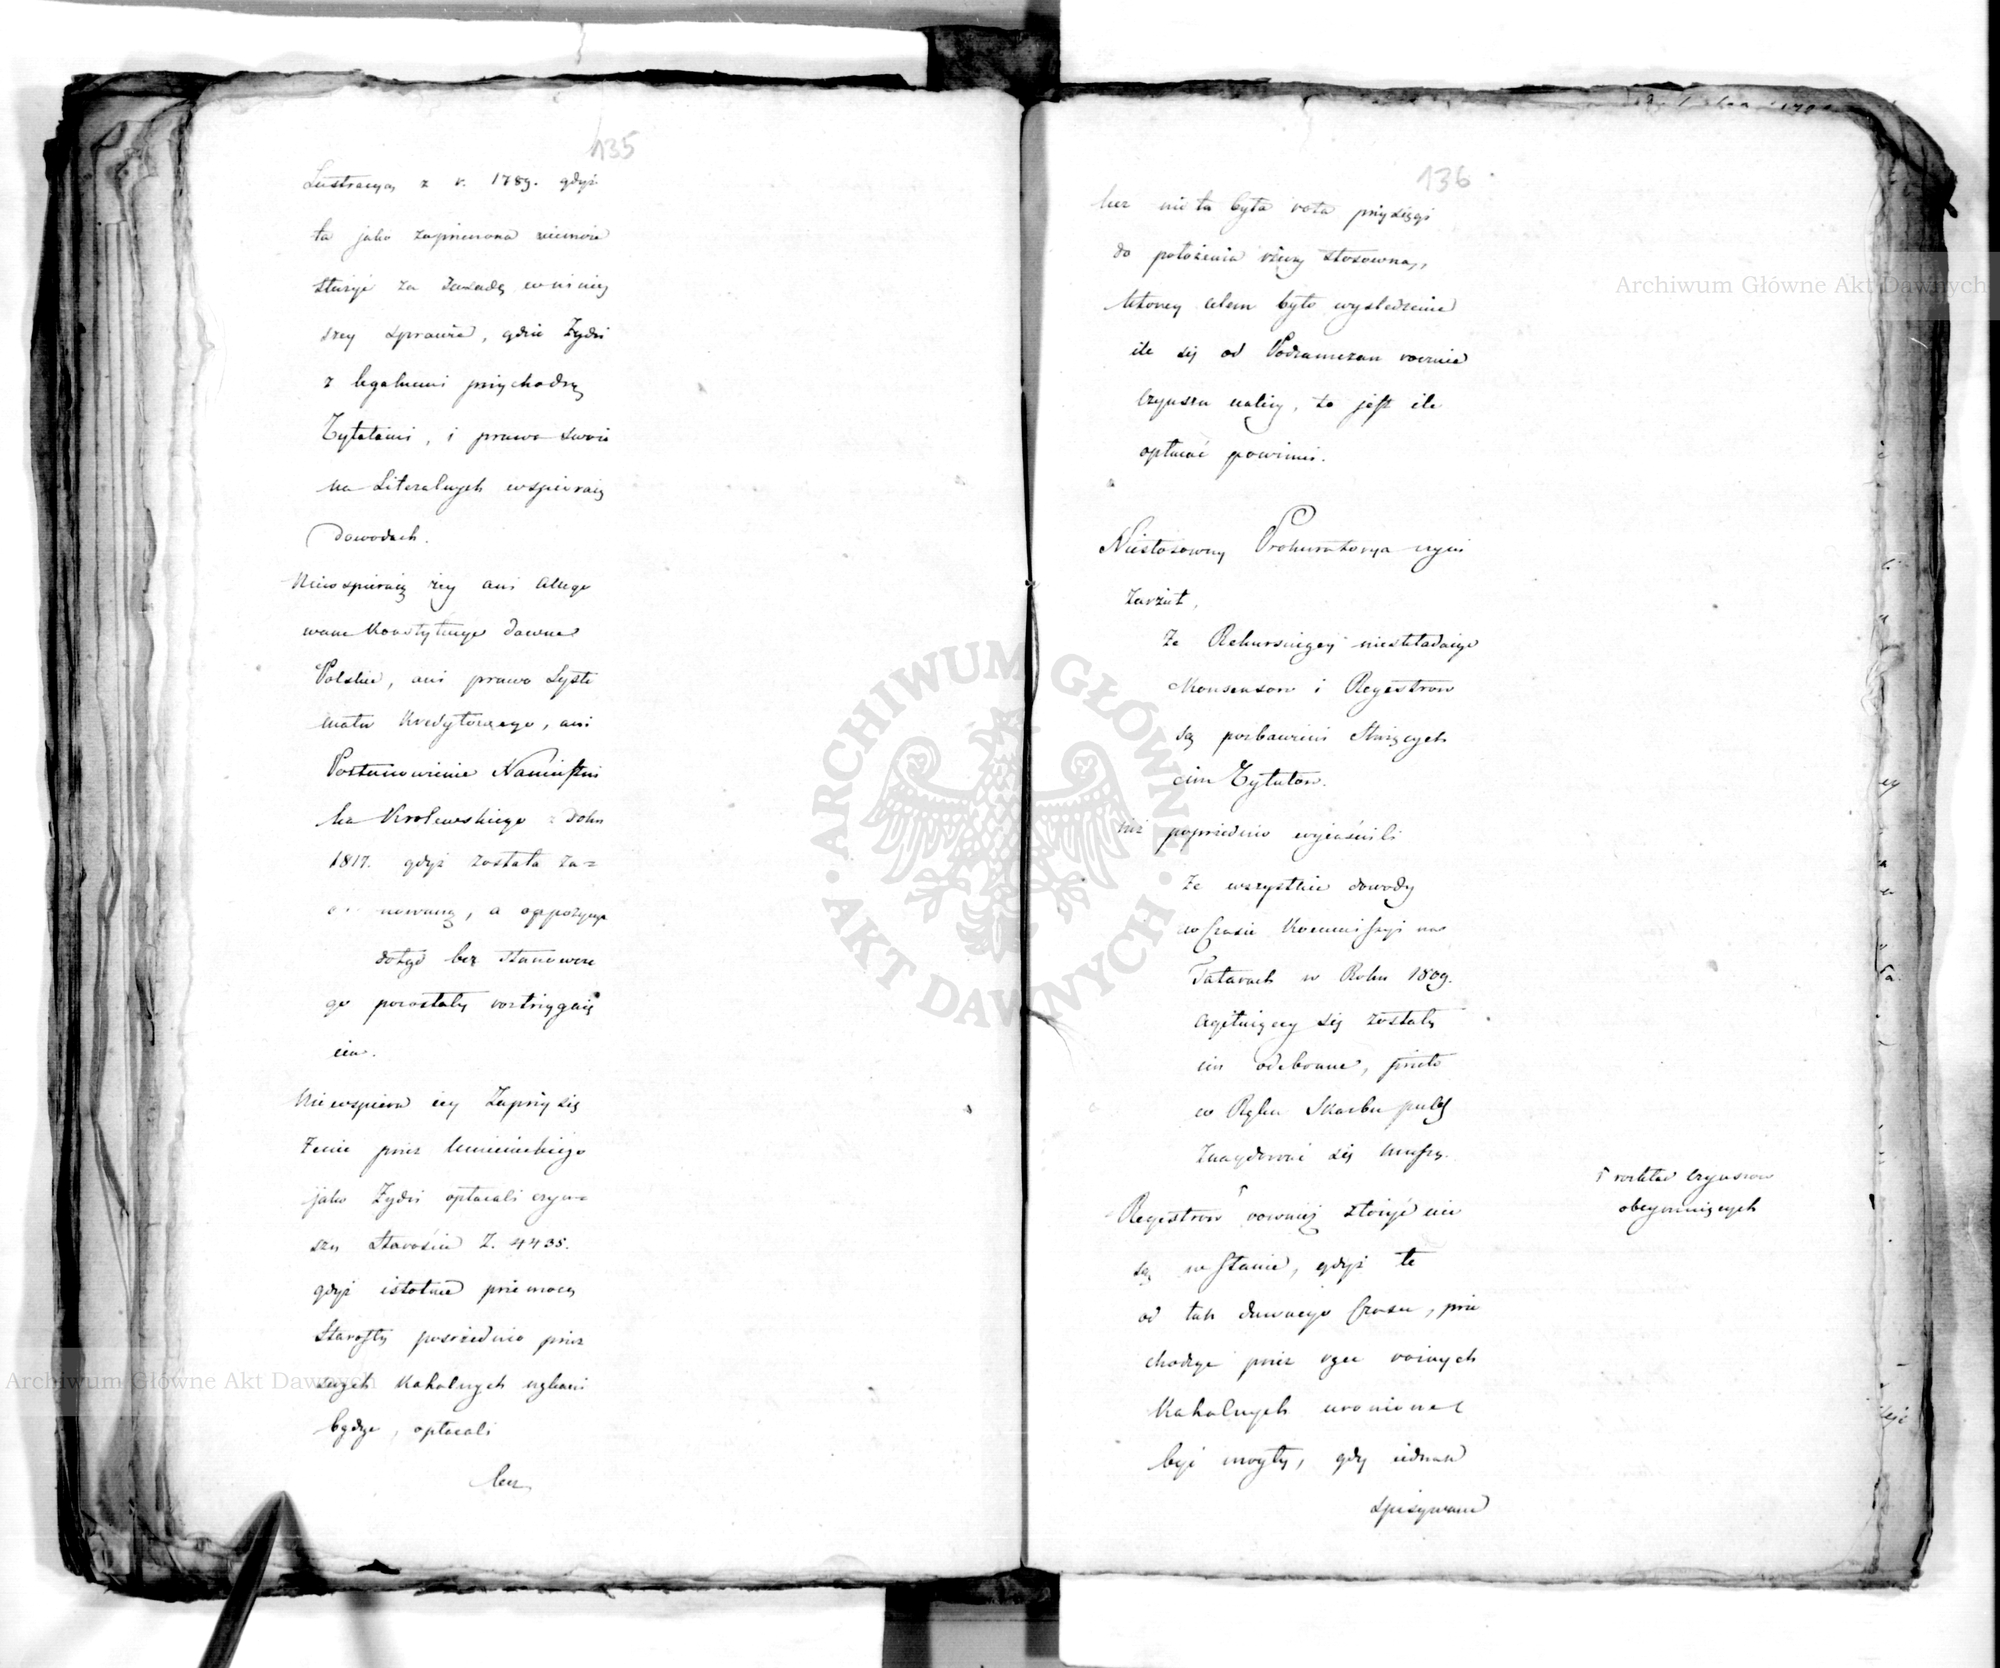 135
Lustracya z r. 1789. gdyż
ta jako zaprzeczona niemoże
służyć za zasadę w niniey
szey sprawie, gdzie Żydzi
z legalnemi przychodzą
Tytułami, i prawa swoie
na Literalnych wspieraią
dowodach.
Niewspieraią iey ani allego
wane Konstytucye dawne
Polskie, ani prawo Syste
matu Kredytowego, ani
Postanowienie Namiestni
ka Krolewskiego z Roku
1817. gdyż została za=
nowaną, a oppozycye
dotąd bez stanowcze
go pozostały roztrzygnię
cia.
Niewspiera iey Zaprzysię
żenie przez
jako Żydzi opłacali czyn=
szu Staroście Z. 4435.
gdyż istotnie przemocą
Starosty pośrednio przez
swych Kahalnych
będąc, opłacali
lecz
136
lecz nie ta była rota przysięgi
do położenia rzeczy stosowna,
ktorey celem było wyśledzenie
ile się od Podzamczan rocznie
czynszu należy, to jest ile
opłacać powinni.
Niestosowny Prokuratorya czyni
Zarzut,
Że Rekursuiący nieskładaiąc
Konsensow i Regestrow
są pozbawieni służących
im Tytułow.
poprzednio wyjaśnili
Że wszystkie dowody
w czasie Kommissyi na
Tatarach w Roku 1809.
agituiącey się zostały
im odebrane, przeto
w Ręku Skarbu publ
Znaydować się muszą.
Regestrow ⌈ rowniez złożyć nie
są w stanie, gdyż te
od tak dawnego czasu, prze
chodząc przez ręce roznych
Kahalnych uronione
być mogły, gdy iednak
spisywane
⌈ rozkład czynszow
obeymuiących
Archiwum Główne Akt Dawnych
Archiwum Główne Akt Dawnych
ARCHIWUM GŁÓWNE · AKT DAWNYCH ·